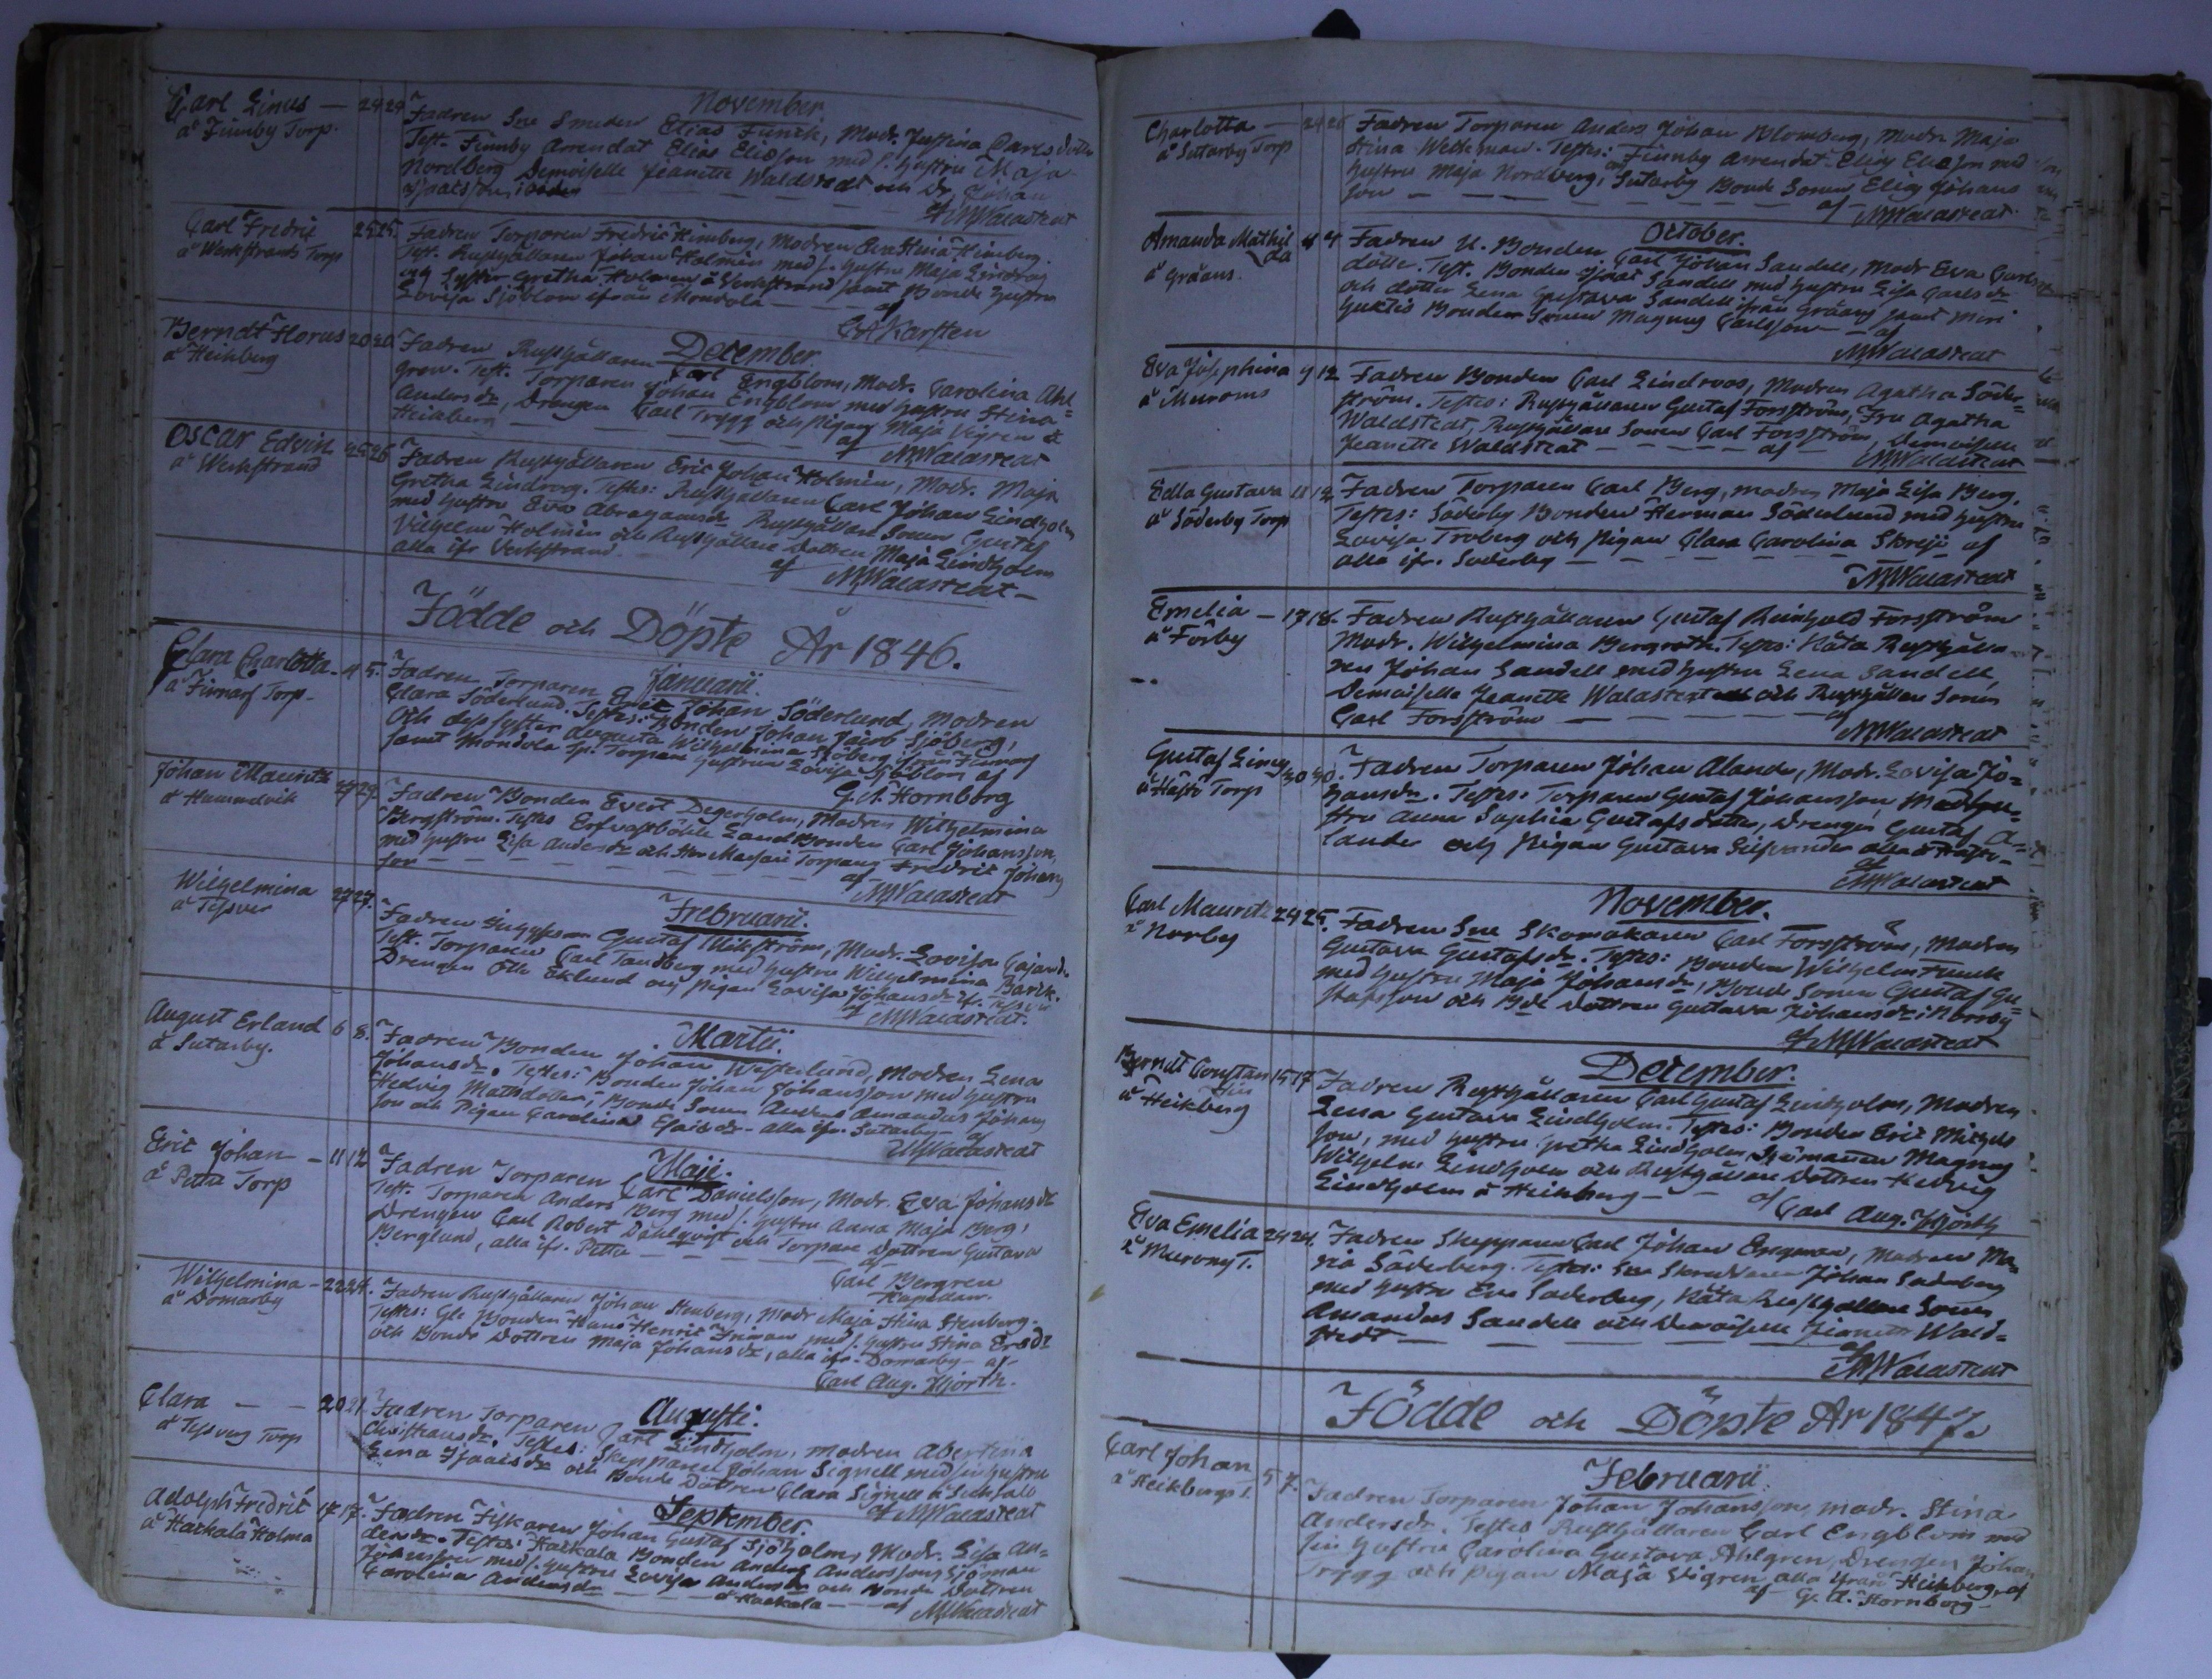 November
Carl Linus — 24 24 Fadren Sne Smeden Elias Funck, Modr. Justina Carls dotter
å Finnby Torp. Test. Finnby Arrendat Elias Eliæson med s. hustru Maja
Nordberg Demoiselle Jeanette Waldstedt och Dr. Johan
af MWaldstedt
Carl Fredric 25 25. Fadren Torparen Fredric Himberg, Modren Eva Stina Himberg.
å Werkstrands Torp Test. Rusthållaren Johan Holmén med s. hustru Maja Lindroos
och Syster Gretha Holmén å Verkstrand samt Bonde hustru
Lovisa Sjöblom ifrån Mondola — af
CAKarsten
December
Berndt Florus 20 20. Fadren Rusthållaren Carl Engblom, Modr. Carolina Ahl=
å Heikberg gren. Test. Torparen Johan Engblom med hustru Stina
Anders dr, Drengen Carl Trygg och Pigan Maja Vigren å
Heikberg — af MWaldstedt
Oscar Edvin 25 26 Fadren Rusthållaren Eric Johan Holmén, Modr. Maja
å Werkstrand Gretha Lindroos. Testes: Rusthållaren Carl Johan Lindholm
med hustru Eva Abrahamsdr Rusthållare Sonen Gustaf
Vilhelm Holmén och Rusthållare Dottren Maja Lindholm
alla ifr. Verkstrand af MWaldstedt —
Födde och Döpte År 1846.
Januarii.
Clara Charlotta 4 5. Fadren Torparen Eric Johan Söderlund, Modren
å Finnarf Torp — Clara Söderlund. Testes: Bonden Johan Jacob Sjöberg,
och dess syster Augusta Wilhelmina Sjöberg ifrån Finnarf
samt Mondola Torparen hustrun Lovisa Sjöblom af
G.A. Hornborg
Johan Mauritz 27 29. Fadren Bonden Evert Degerholm, Modren Wilhelmina
å Hummelvik Bergström. Testes Erfvastböhle Landbonden Carl Johansson,
med hustru Lisa Andersdr och Torparen Fredric Johans
son — af MWaldstedt
Februarii.
Wilhelmina 27 27. Fadren Gustaf Wikström, Modr. Lovisa
å Tessver Test. Torparen Carl Tandberg med hustru Wilhelmina
Drengen Otto Eklund och Pigan Lovisa Johansdr ifr. Tessver
af MWaldstedt.
Martii.
August Erland 6 8. Fadren Bonden Johan Westerlund, Modren Lena
å Sutarby. Johansdr. Testes: Bonden Johan Johansson med hustru
Hedvig Mathsdotter, Bonde Sonen Anders Amandus Johans
son och Pigan Carolina Esaisdr — alla ifr. Sutarby af
MWaldstedt
Maji.
Eric Johan — 11 12. Fadren Torparen Carl Danielsson, Modr. Eva Johansdr
å Pettu Torp Test. Torparen Anders Berg med s. hustru Anna Maja Berg,
Drengen Carl Robert Dahlqvist och Torpare Dottren Gustava
Berglund, alla ifr. Pettu — af
Carl Bergren
Kapellan.
Wilhelmina — 22 24. Fadren Rusthållaren Johan Stenberg, Modr Maja Stina Stenberg.
å Domarby Testes: Gle Bonden Hans Henric Friman med s. hustru Stina Ersdr
och Bonde Dottren Maja Johansdr, alla ifr. Domarby — af
Carl Aug. Hjorth.
Augusti.
Clara — — 20 21. Fadren Torparen Carl Lindholm, Modren Abertina
å Tessvers Torp Christiansdr. Testes: Skepparen Johan Signell med sin hustru
Lena Isaacsdr och Bonde Dottren Clara Signell
af MWaldstedt
September.
Adolph Fredric 17 17. Fadren Fiskaren Johan Gustaf Sjöholm, Modr. Lisa An=
å Karkala Holma dersdr. Testes: Karkala Bonden Anders Andersson, Sjöman
Johansson med s. hustru Lovisa Andersdr och Bonde Dottren
Carolina Andersdr — å Karkala — af MWaldstedt
Charlotta — 24 26 Fadren Torparen Anders Johan Blomberg, Modr Maja
å Suttarby Torp Stina Weckman. Testes: Finnby Arrendat. Elias Eliæson med
hustru Maja Nordberg, Sutarby Bonde Sonen Elias Johans
son — af MWaldstedt.
October.
Amanda Mathil da 4 4 Fadren U. Bonden Carl Johan Sandell, Modr Eva Carls
å Gråäns. dotter. Test. Bonden Isaac Sandell med hustru Lisa Carls dr
och dotter Lena Gustava Sandell ifrån Gråäns samt
Bonden Sonen Magnus Carlsson — af
MWaldstedt
Eva Josephina 9 12 Fadren Bonden Carl Lindroos, Modren Agatha Söder=
å Muroms ström. Testes: Rusthållaren Gustaf Forsström, Fru Agatha
Waldstedt, Rusthållare Sonen Carl Forsström, Demoiselle
Jeanette Waldstedt — af MWaldstedt
Edla Gustava 11 12 Fadren Torparen Carl Berg, modren Maja Lisa Berg,
å Söderby Torp Testes: Söderby Bonden Herman Söderlund med hustru
Lovisa Troberg och Pigan Clara Carolina af
alla ifr. Söderby —
MWaldstedt
Emelia — 17 18. Fadren Rusthållaren Gustaf Reinhold Forsström
å Förby Modr. Wilhelmina Bergroth. Testes: Kåta Rusthålla
ren Johan Sandell med hustru Lena Sandell,
Demoiselle Jeanette Waldstedt och Rusthållare Sonen
Carl Forsström — af
MWaldstedt
Gustaf Linus 30 30. Fadren Torparen Johan Alander, Modr. Lovisa Jo=
å Hästö Torp hansdr. Testes: Torparen Gustaf Johansson Med hu
stru Anna Sophia Gustafs dotter, Drengen Gustaf A=
lander och Pigan Gustava Silfvander alla å Hästö
af MWaldstedt
November.
Carl Mauritz 24 25. Fadren Sne Skomakaren Carl Forsström, Modren
å Norrby Gustava Gustafsdr. Testes: Bonden Wilhelm Funck
med hustru Maja Johansdr, Bonde Sonen Gustaf Gu=
stafsson och Bde Dottren Gustava Johansdr i Norrby
af MWaldstedt
December.
Berndt Constan tin 15 17 Fadren Rusthållaren Carl Gustaf Lindholm, Modren
å Heikberg Lena Gustava Lindholm. Testes: Bonden Eric Michels
son, med hustru Gretha Lindholm Sjömannen Magnus
Wilhelm Lindholm och Rusthållare Dottren Hedvig
Lindholm å Heikberg — af Carl Aug. Hjorth
Eva Emelia 24 24. Fadren Skepparen Carl Johan Engman, Modren Ma=
å Muroms T. ria Söderberg. Testes: Sne Skräddaren Johan Söderberg
med hustru Eva Söderberg, Kåta Rusthållare Sonen
Amandus Sandell och Demoiselle Jeanette Wald=
stedt — af
MWaldstedt
Födde och Döpte År 1847.
Februarii.
Carl Johan 5 7. Fadren Torparen Johan Johansson, modr. Stina
å Heikbergs T. Andersdr. Testes Rusthållaren Carl Engblom med
sin hustru Carolina Gustava Ahlgren, Drengen Johan
Trygg och Pigan Maja Vigren, alla ifrån Heikberg, af
af G. A. Hornborg